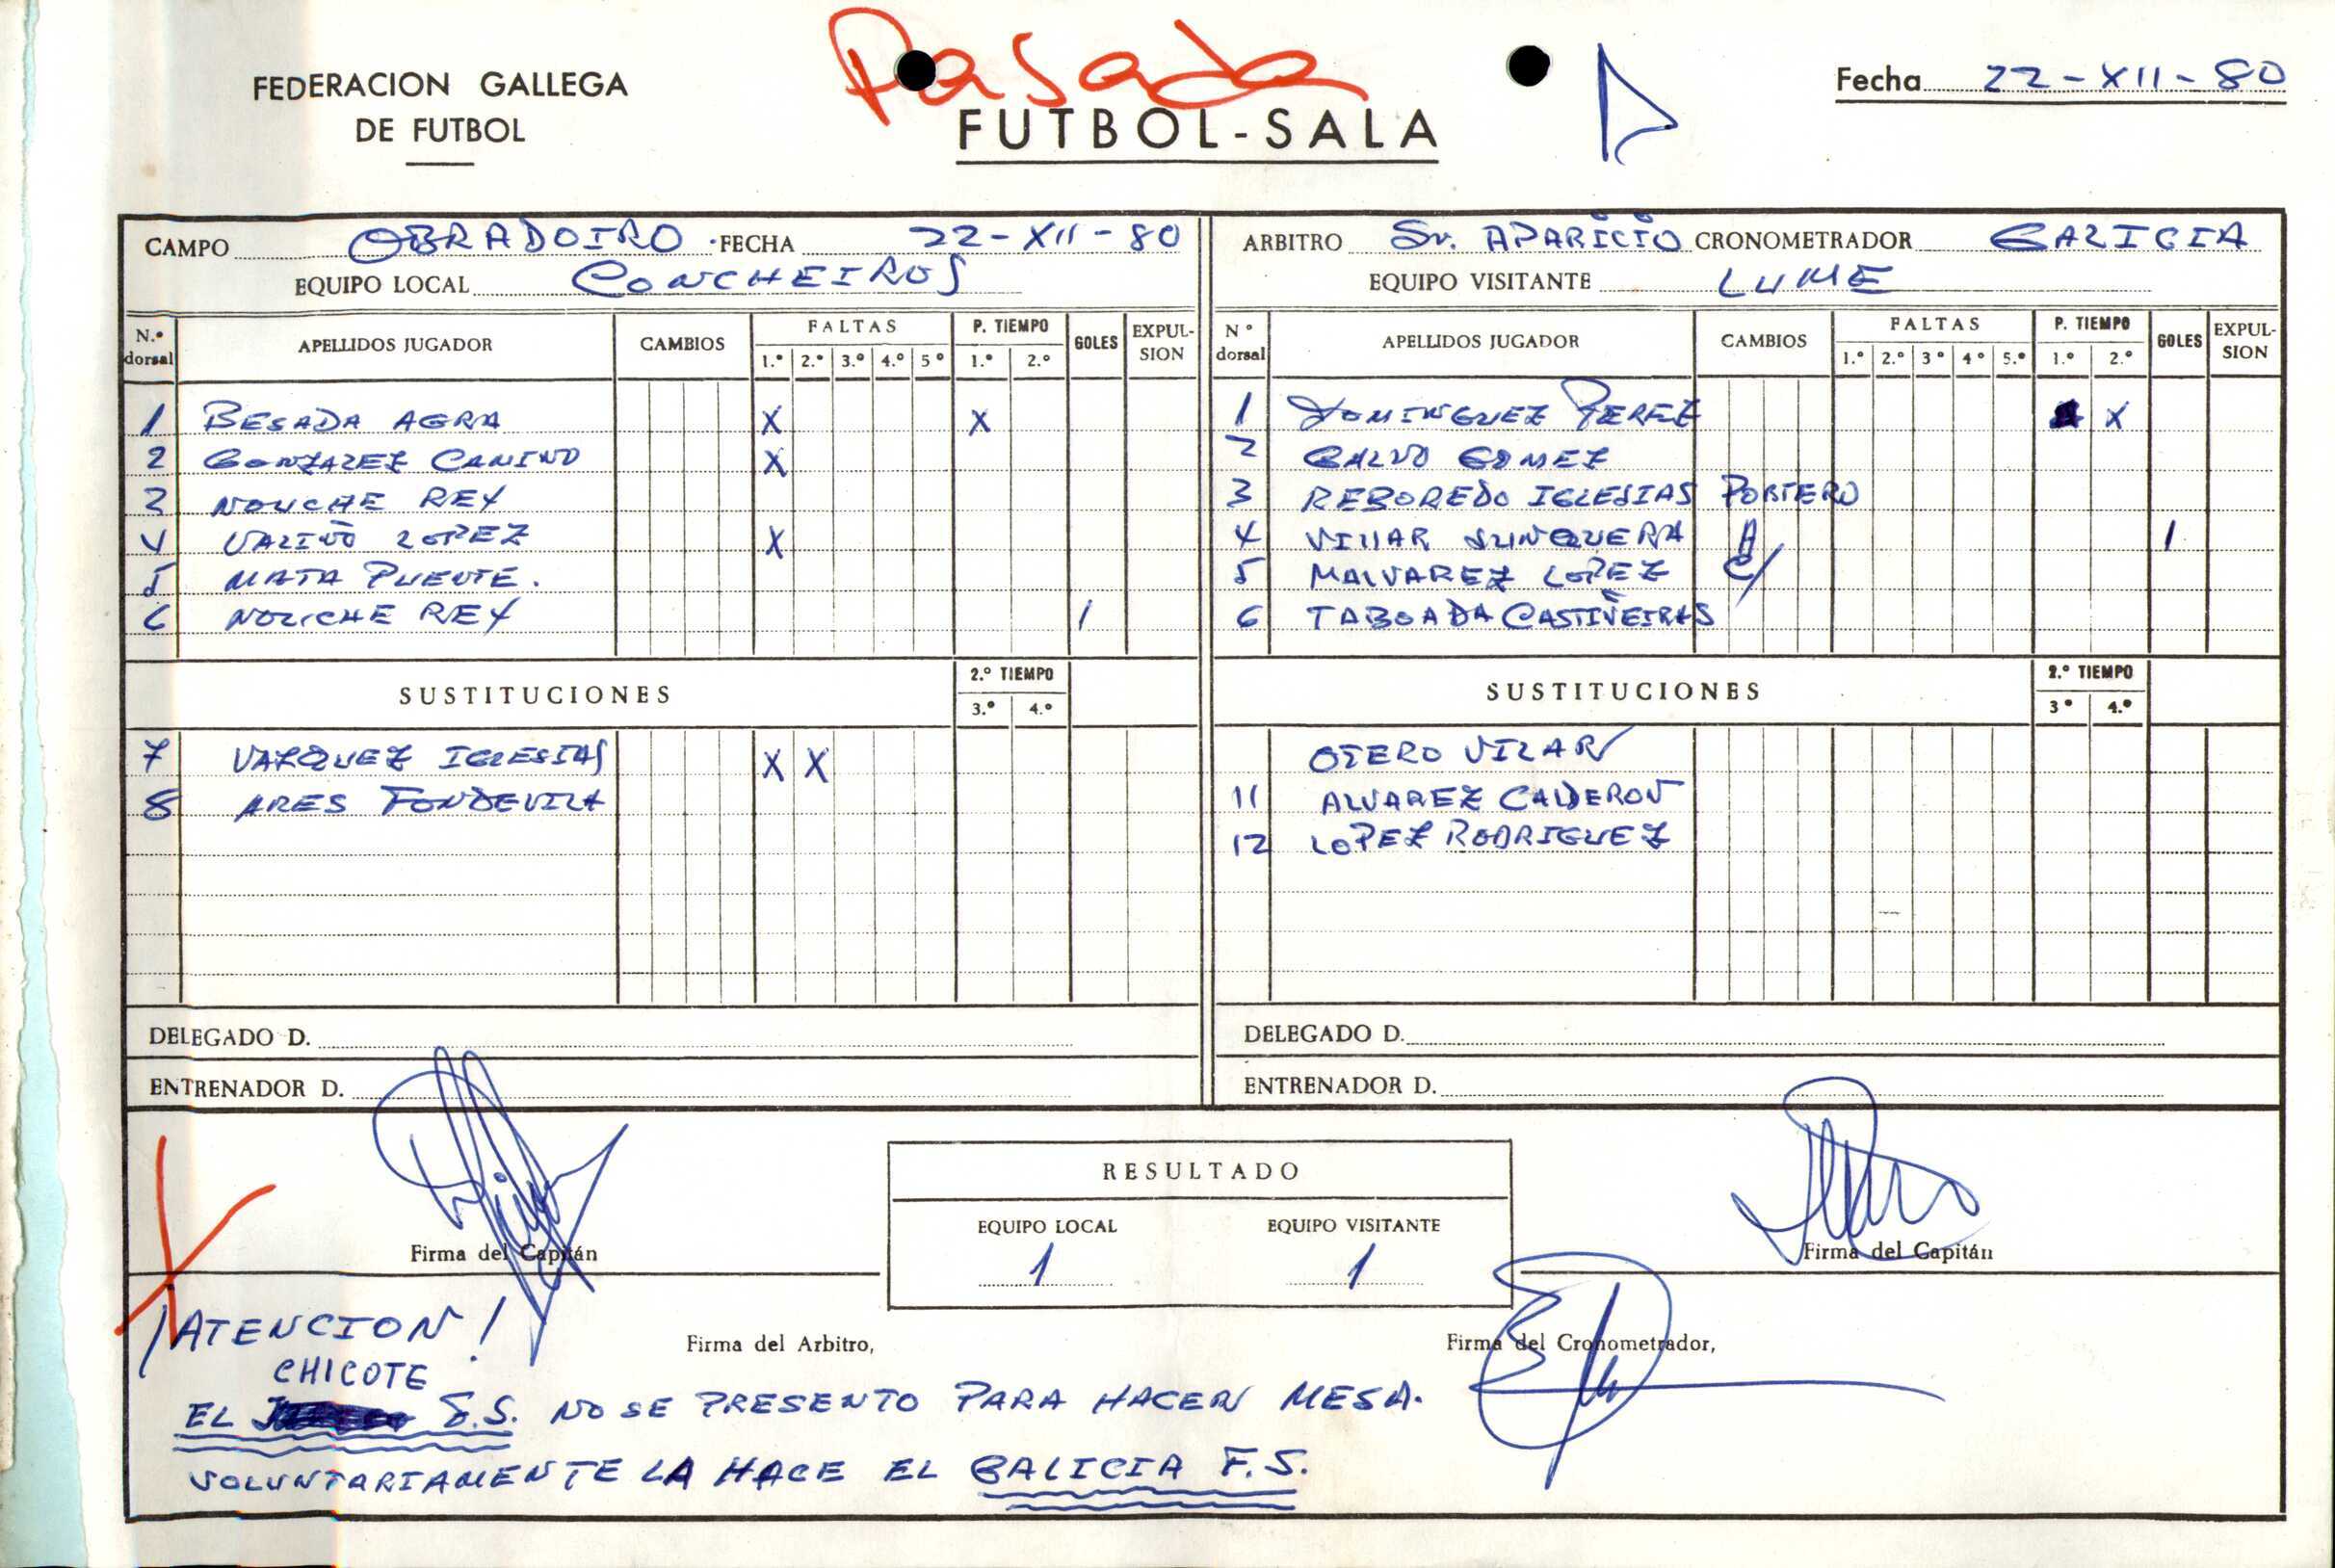 Pasada
FEDERACION GALLEGA
DE FUTBOL
FUTBOL-SALA
Fecha 22-XII-80
CAMPO OBRADOIRO FECHA 22-XII-80
EQUIPO LOCAL CONCHEIROS
N.º dorsal APELLIDOS JUGADOR CAMBIOS FALTAS P. TIEMPO GOLES EXPULSION
1.º 2.º 3.º 4.º 5º 1.º 2.º
1 BESADA AGRA X X
2 GONZALEZ CAMINO X
3 NOUCHE REY
4 VALIÑO LOPEZ X
5 MATA PUENTE.
6 NOUCHE REY 1
SUSTITUCIONES 2.º TIEMPO
3.º 4.º
7 VAZQUEZ IGLESIAS X X
8 ARES FONDEVILA
DELEGADO D.
ENTRENADOR D.
ARBITRO Sr. APARICIO CRONOMETRADOR GALICIA
EQUIPO VISITANTE LUME
Nº dorsal APELLIDOS JUGADOR CAMBIOS FALTAS P. TIEMPO GOLES EXPULSION
1.º 2.º 3º 4º 5.º 1.º 2.º
1 DOMINGUEZ PEREZ X
2 CALVO GOMEZ
3 REBOREDO IGLESIAS PORTERO
4 VILLAR JUNQUERA 1
5 MALVAREZ LOPEZ C/
6 TABOADA CASTIÑEIRAS
SUSTITUCIONES 2.º TIEMPO
3º 4.º
OTERO VILAR
11 ALVAREZ CALDERON
12 LOPEZ RODRIGUEZ
DELEGADO D.
ENTRENADOR D.
RESULTADO
EQUIPO LOCAL EQUIPO VISITANTE
1 1
Firma del Capitán
Firma del Capitán
Firma del Arbitro,
Firma del Cronometrador,
¡ATENCION!
CHICOTE
EL F.S. NO SE PRESENTO PARA HACER MESA.
VOLUNTARIAMENTE LA HACE EL GALICIA F.S.